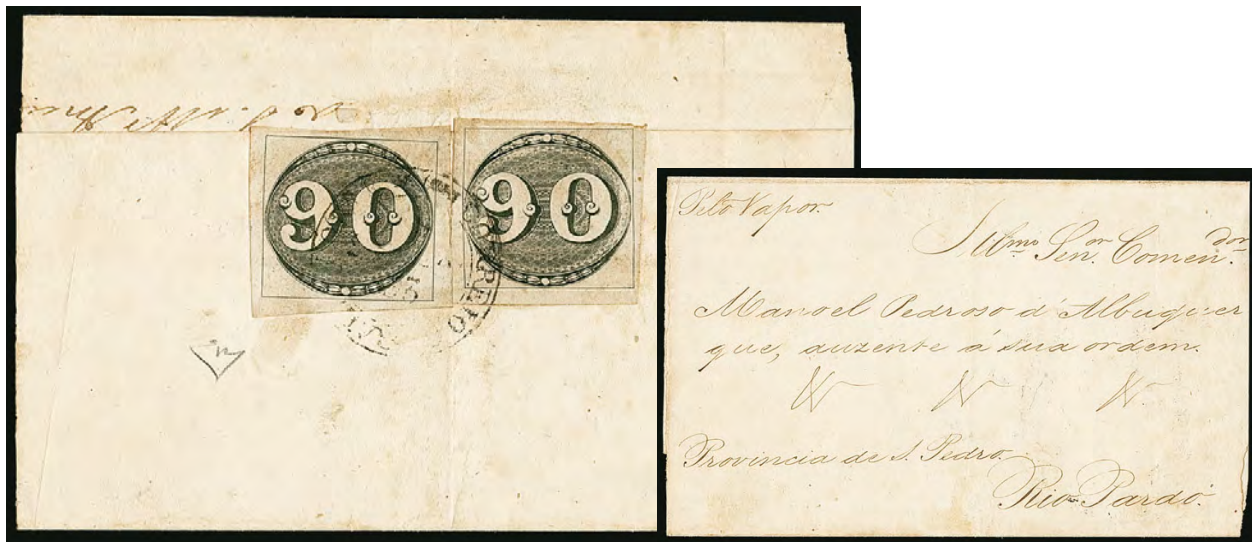 90 90
CORREIO
Pelo Vapor.
Illmo Senr. Comendor.
Manoel Pedroso d'Albuquer
que, auzente á sua ordem.
Provincia de S. Pedro.
Rio Pardo.